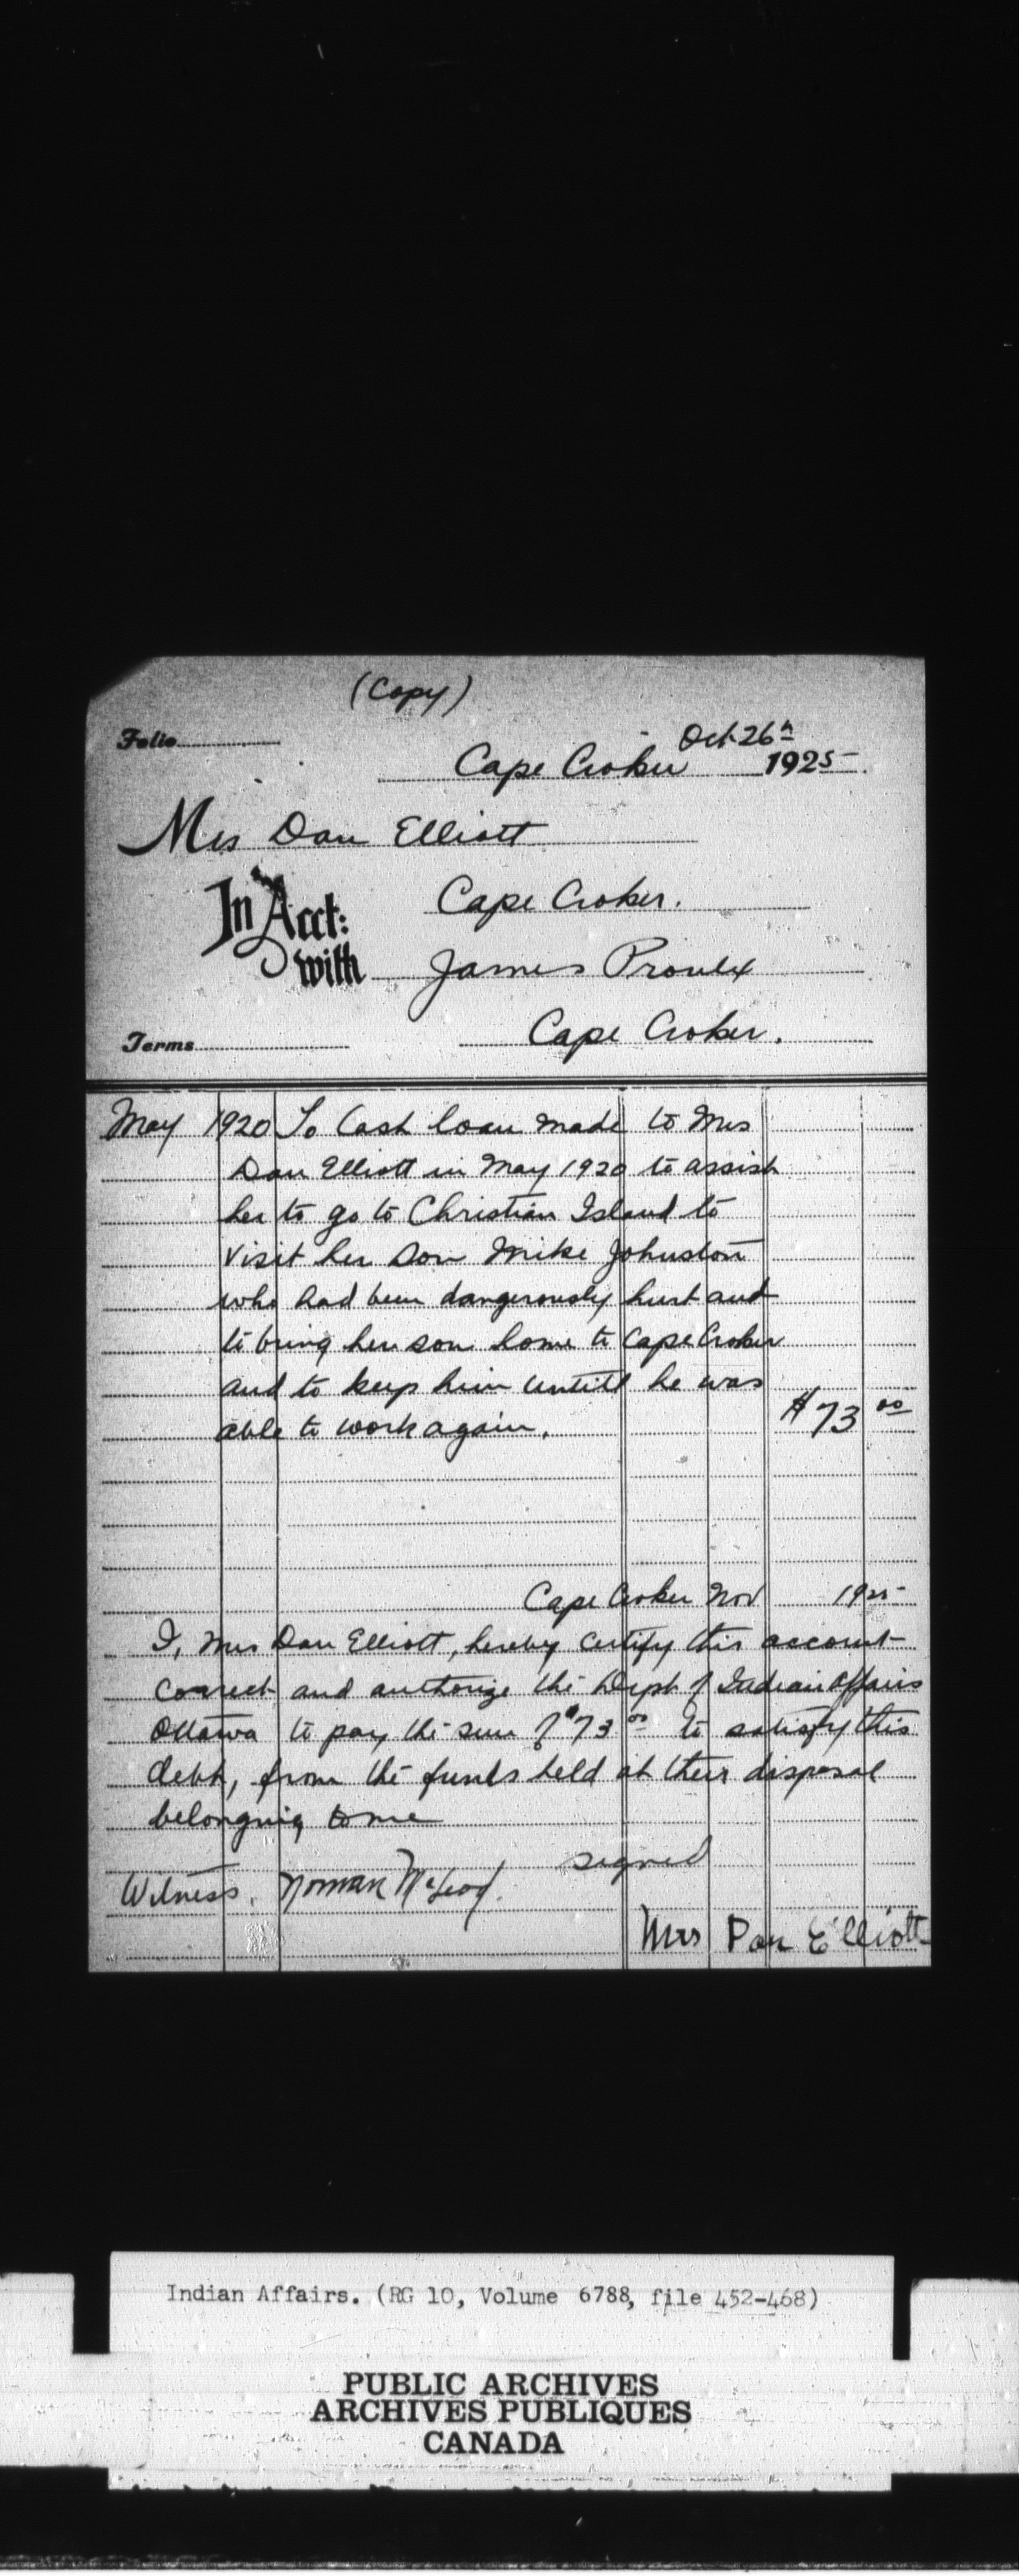 (Copy)
Folio
Oct 26th
Cape Croker 1925
Mrs Dan Elliott
Cape Croker.
In Acct: with James Proulx
Terms Cape Croker.
May 1920 To Cash loan made to Mrs
Dan Elliott in May 1920 to assist
her to go to Christian Island to
visit her son Mike Johnston
who had been dangerously hurt and
to bring her son home to Cape Croker
and to keep him untill he was
able to work again. $73 00
Cape Croker Nov 1925
I, Mrs Dan Elliott, hereby certify this account
correct and authorize the Dept of Indian Affairs
Ottawa to pay the sum of $73 00 to satisfy this
debt, from the funds held at their disposal
belonging to me
signed
Witness. Norman McLeod.
Mrs Dan Elliott
Indian Affairs. (RG 10, Volume 6788, file 452-468)
PUBLIC ARCHIVES
ARCHIVES PUBLIQUES
CANADA